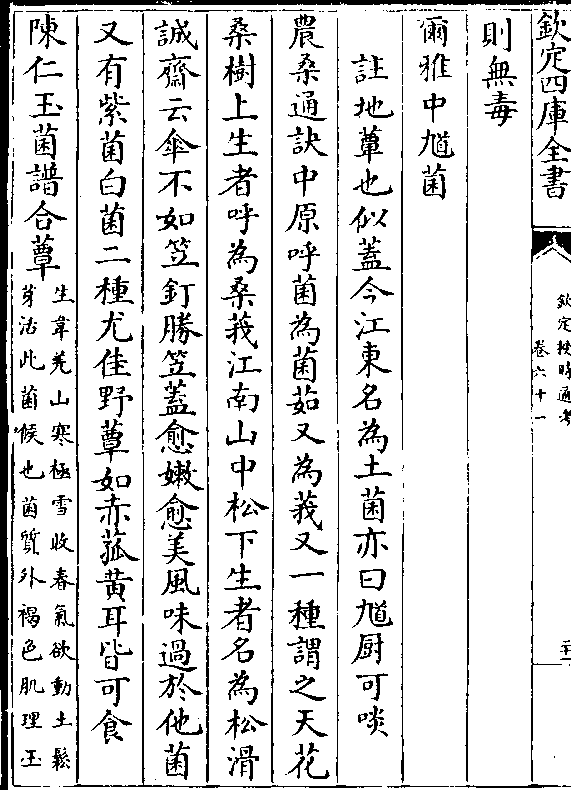 欽定四庫全書
欽定授時通考
卷六十一
則無毒
爾雅中馗菌
註地蕈也似蓋今江東名為土菌亦曰馗厨可啖
農桑通訣中原呼菌為菌茹又為莪又一種謂之天花
桑樹上生者呼為桑莪江南山中松下生者名為松滑
誠齋云傘不如笠釘勝笠蓋愈嫩愈美風味過於他菌
又有紫菌白菌二種尤佳野蕈如赤菰黄耳皆可食
陳仁玉菌譜合蕈
生韋羌山寒極雪收春氣欲動土鬆
芽活此菌候也菌質外褐色肌理玉